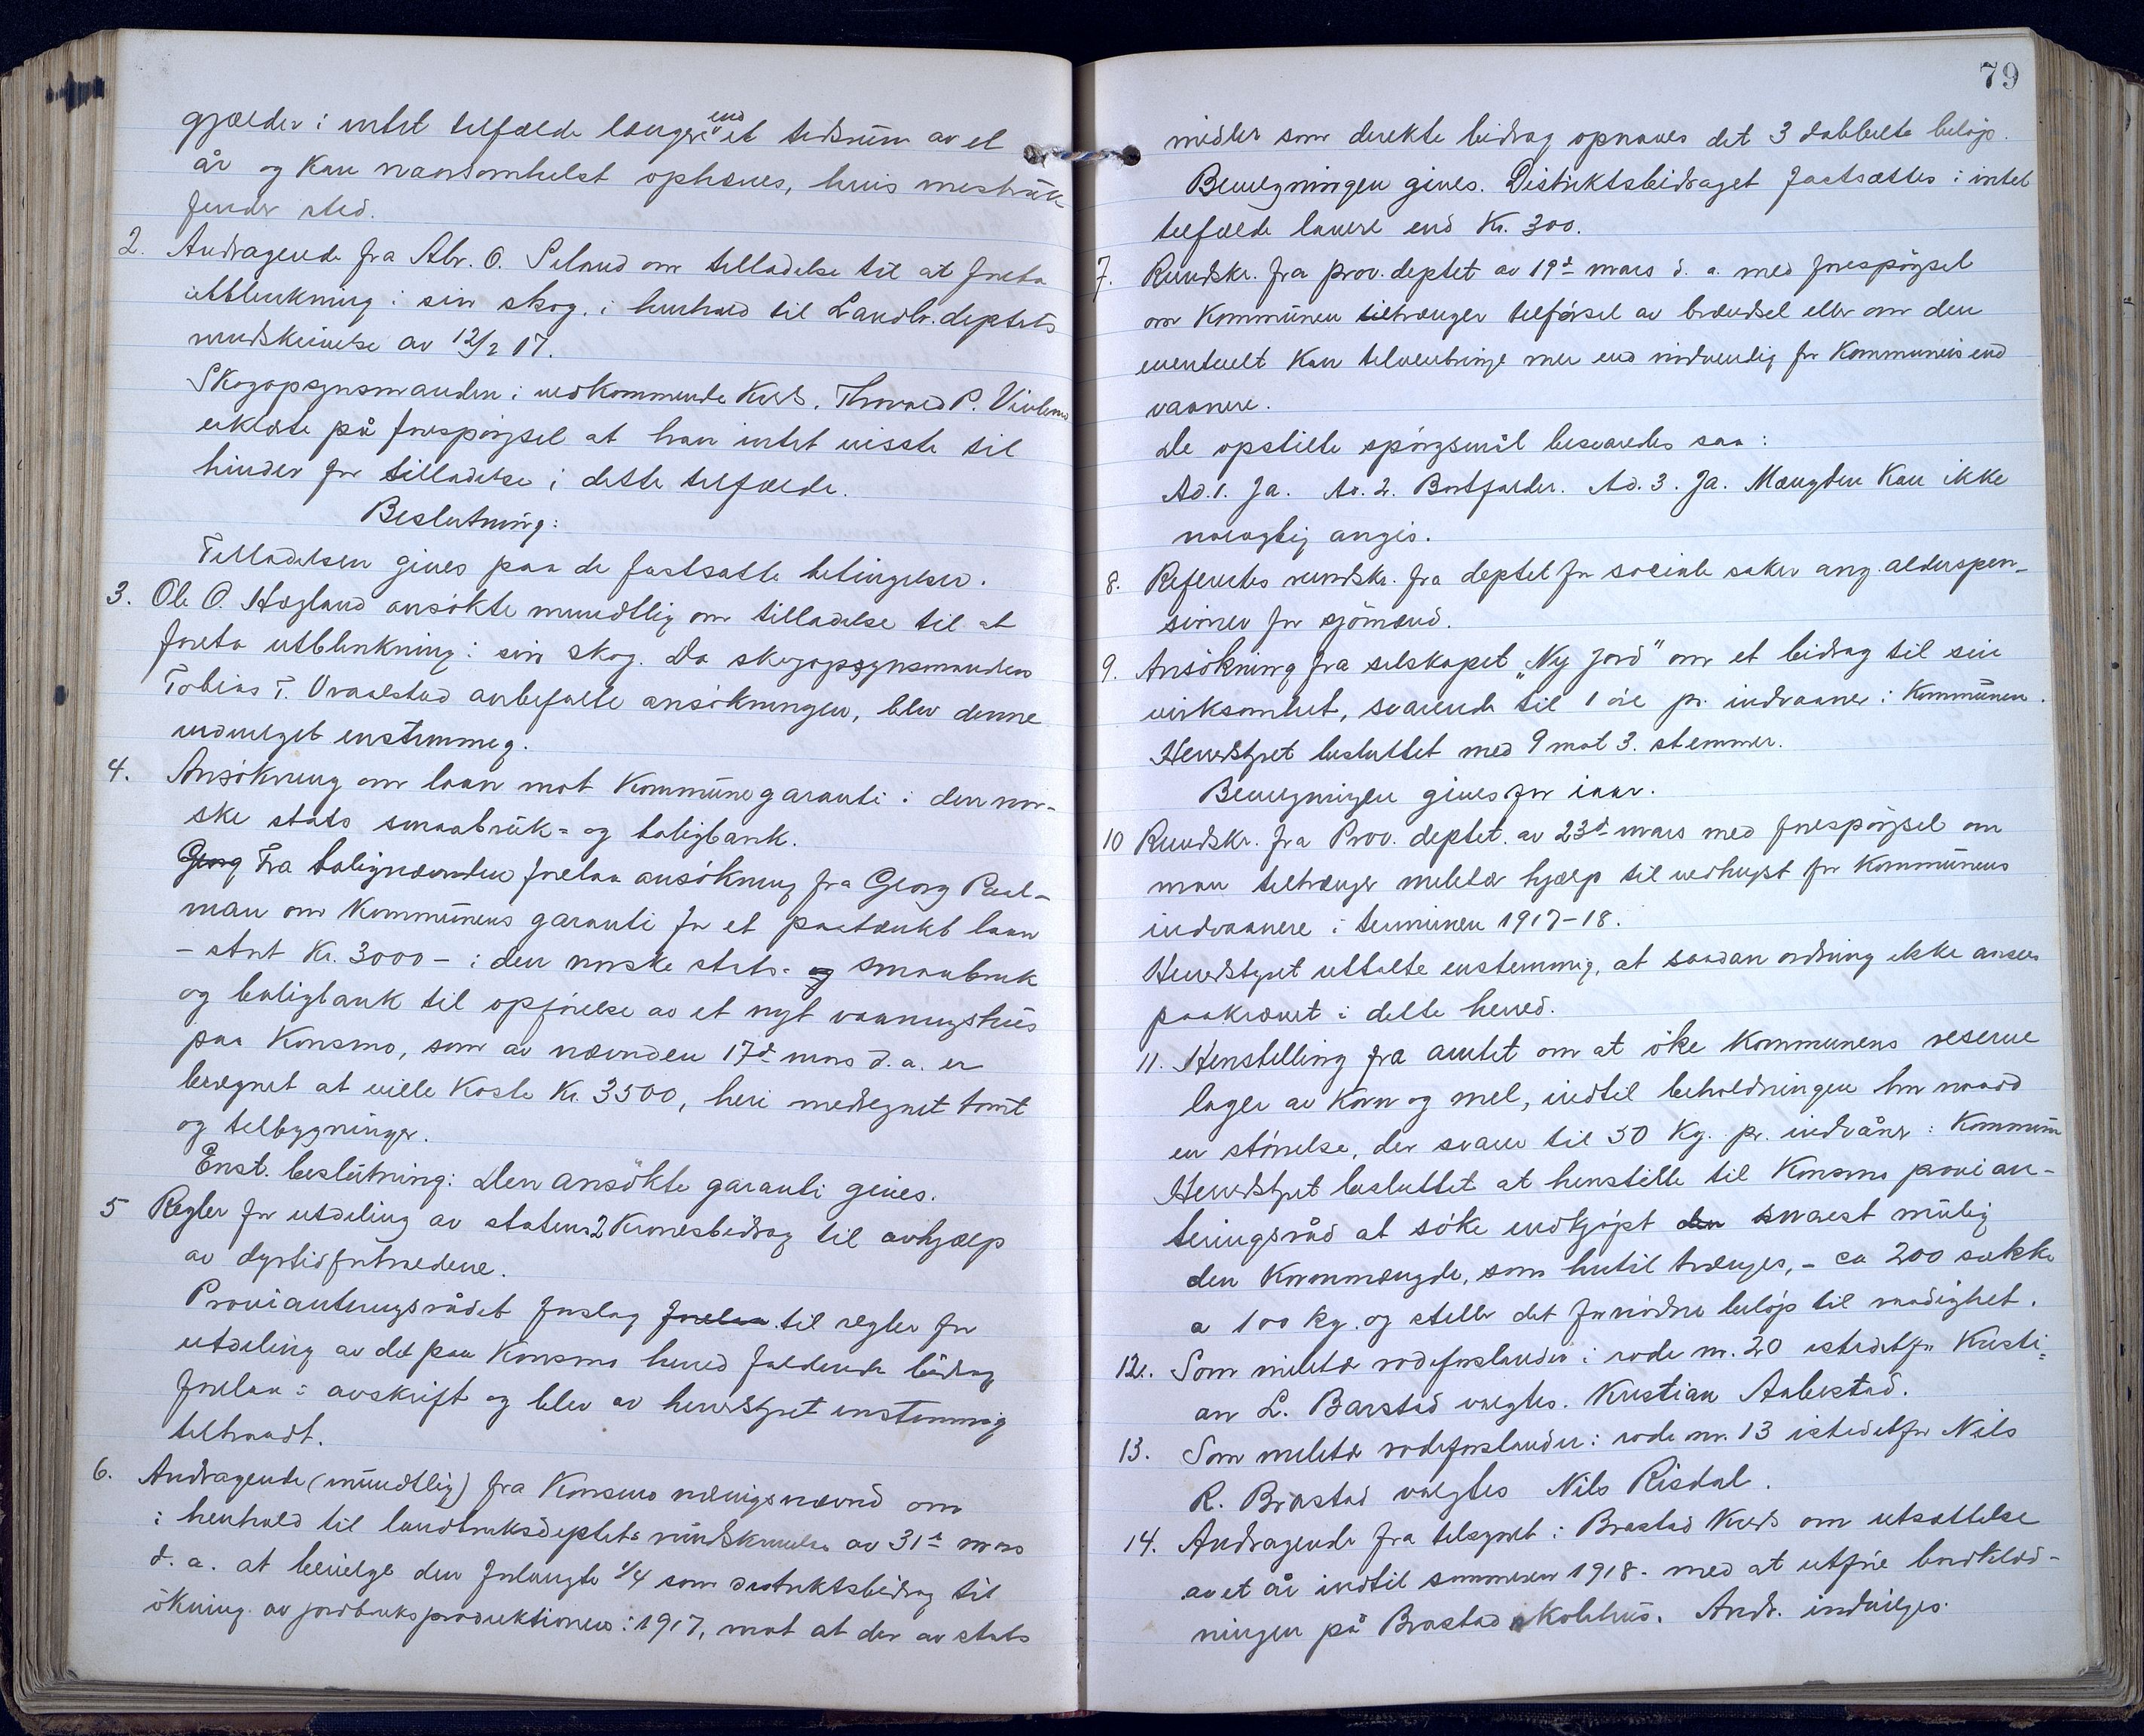 gjælder i intet tilfælde længere end et tidsrum av et
år og kan naarsomhelst ophæves, hvis mesbruk
finder sted.
2. Andragende fra Abr. O. Seland om tilladelse til at foreta
utblinkning i sin skog, i henhold til Landbr. deptets
rundskrivelse av 12/2 17.
Skogopsynsmanden i vedkommende kreds, Thorvald P.
erklærte på forespørsel at han intet visste til
hinder for tilladelse i dette tilfælde.
Beslutning:
Tilladelsen gives paa de fastsatte betingelser.
3. Ole O. Høgland ansökte mundtlig om tilladelse til at
foreta utblinkning i sin skog. Da skogopsynsmanden
Tobias T. Ovaalstad anbefalte ansökningen, blev denne
indvilget enstemmig.
4. Ansökning om laan mot Kommunegaranti i den nor-
ske stats smaabruk- og boligbank.
Georg Fra bolignævnden forelaa ansökning fra Georg Paul-
man om Kommunens garanti for et paatænkt laan
- stort Kr. 3000 - i den norske stats- og smaabruk
og boligbank til opförelse av et nyt vaaningshus
paa Konsmo, som av nævnden 17de mars d.a. er
beregnet at ville koste Kr. 3500, heri medregnet tomt
og tilbygninger.
Enst. beslutning: Den ansökte garanti gives.
5 Regler for utdeling av statens 2 Kronesbidrag til avhjælp
av dyrtidsforholdene.
Provianteringsrådets forslag forelaa til regler for
utdeling av det paa Konsmo herred faldende bidrag
forelaa i avskrift og blev av herredstyret enstemmig
tiltraadt.
6. Andragende (mundtlig) fra Konsmo næringsnævnd om
i henhold til landbruksdeptets rundskrivelse av 31te mars
d.a. at bevilge den forlangte 1/4 som distriktsbidrag til
ökning av jordbruksproduktionen i 1917, mot at der av stats
79
midler som direkte bidrag opnaaes det 3 dobbelte belöp.
Bevilgningen gives. Distriktsbidraget fastsættes i intet
tilfælde lavere end Kr. 300.
7. Rundskr. fra prov. deptet av 19de mars d. a. med forespörsel
om Kommunen tiltrænger tilförsel av brændsel eller om den
eventuelt kan tilveiebringe mer end nödvendig for Kommunens ind
vaanere.
De opstillte spörgsmål besvaredes saa:
Ad. 1. Ja. Ad. 2. Bortfalder. Ad. 3. Ja. Mængden kan ikke
nöiagtig angis.
8. Refertes rundskr. fra deptet for sociale saker ang. alderspen-
sioner for sjömænd.
9. Ansökning fra selskapet „Ny Jord" om et bidrag til sin
virksomhet, svarende til 1 öre pr. indvaaner i Kommunen.
Herredstyret besluttet med 9 mot 3. stemmer.
Bevilgningen gives for iaar.
10 Rundskr. fra Prov. deptet. av 23de mars med forespörsel om
man tiltrænger militær hjælp til vedhugst for Kommunens
indvaanere i terminen 1917-18.
Herredstyret uttalte enstemmig, at saadan ordning ikke ansees
paakrævet i dette herred.
11. Henstilling fra amtet om at öke kommunens reserve
lager av korn og mel, indtil beholdningen har naadd
en störrelse, der svarer til 50 Kg. pr. indvåner i Kommun
Herredstyret besluttet at henstille til Konsmo provian-
teringsråd at söke indkjöpt den snarest mulig
den kornmængde, som hertil trænges, - ca 200 sække
a 100 kg. og stiller det fornödne belöp til raadighet.
12. Som militær rodeforstander i rode nr. 20 istedetfor Kristi-
an L. Barstad valgtes. Kristian Aabestad.
13. Som militær rodeforstander i rode nr. 13 istedetfor Nils
R. Brastad valgtes Nils Risdal.
14. Andragende fra tilsynet i Brastad Kreds om utsættelse
av et år indtil sommeren 1918 - med at utföre bordklæd-
ningen på Brastad skolehus. Andr. indvilges.